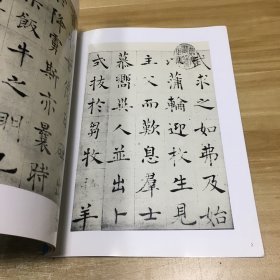 武求之如弗及始
以蒲輪迎枚生見
主父而歎息羣士
慕嚮異人並出卜
式拔於芻牧羊
降虜斯亦曩時
飯牛之朋已